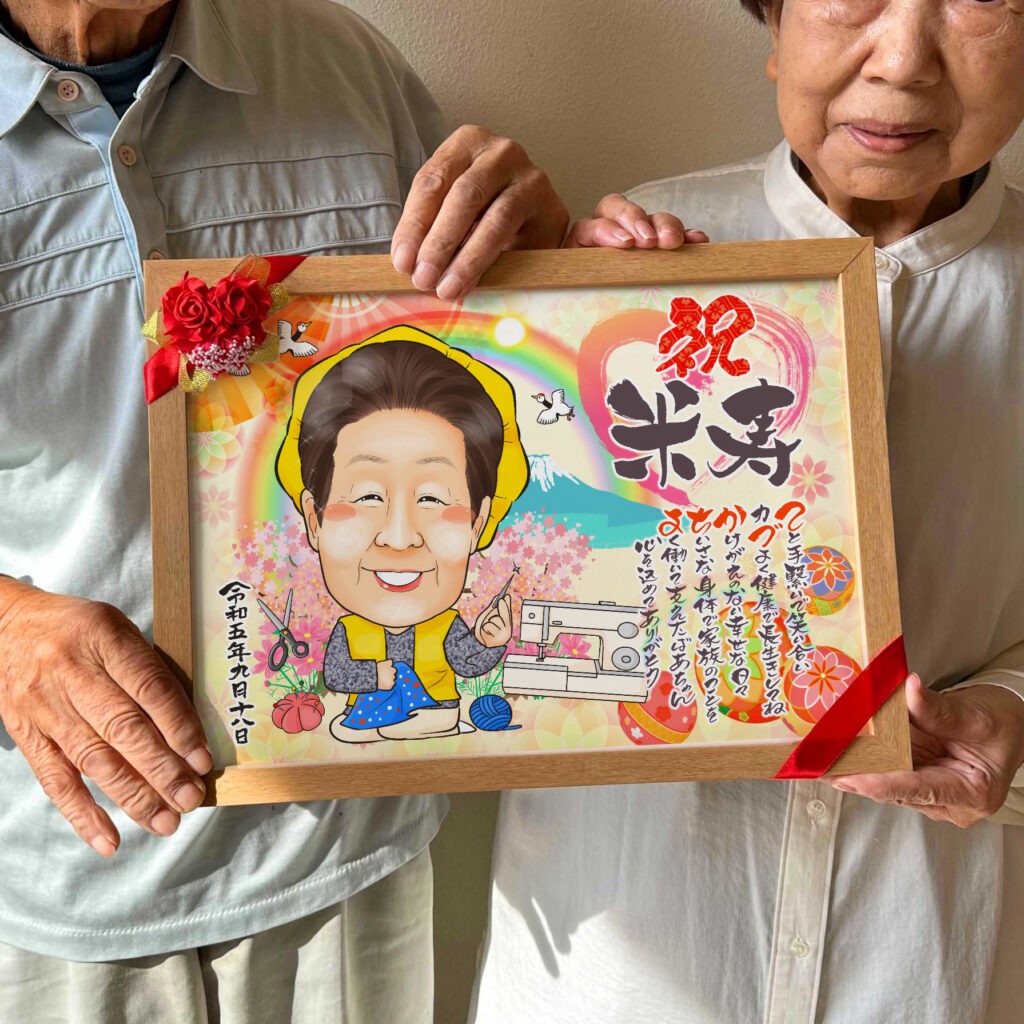 祝
米寿
てと手繋いで笑い合い
力づよく健康で長生きしてね
かけがえのない幸せな日々
ちいさな身体で家族のことを
よく働いて支えたばあちゃん
心を込めてありがとう
令和五年九月十八日